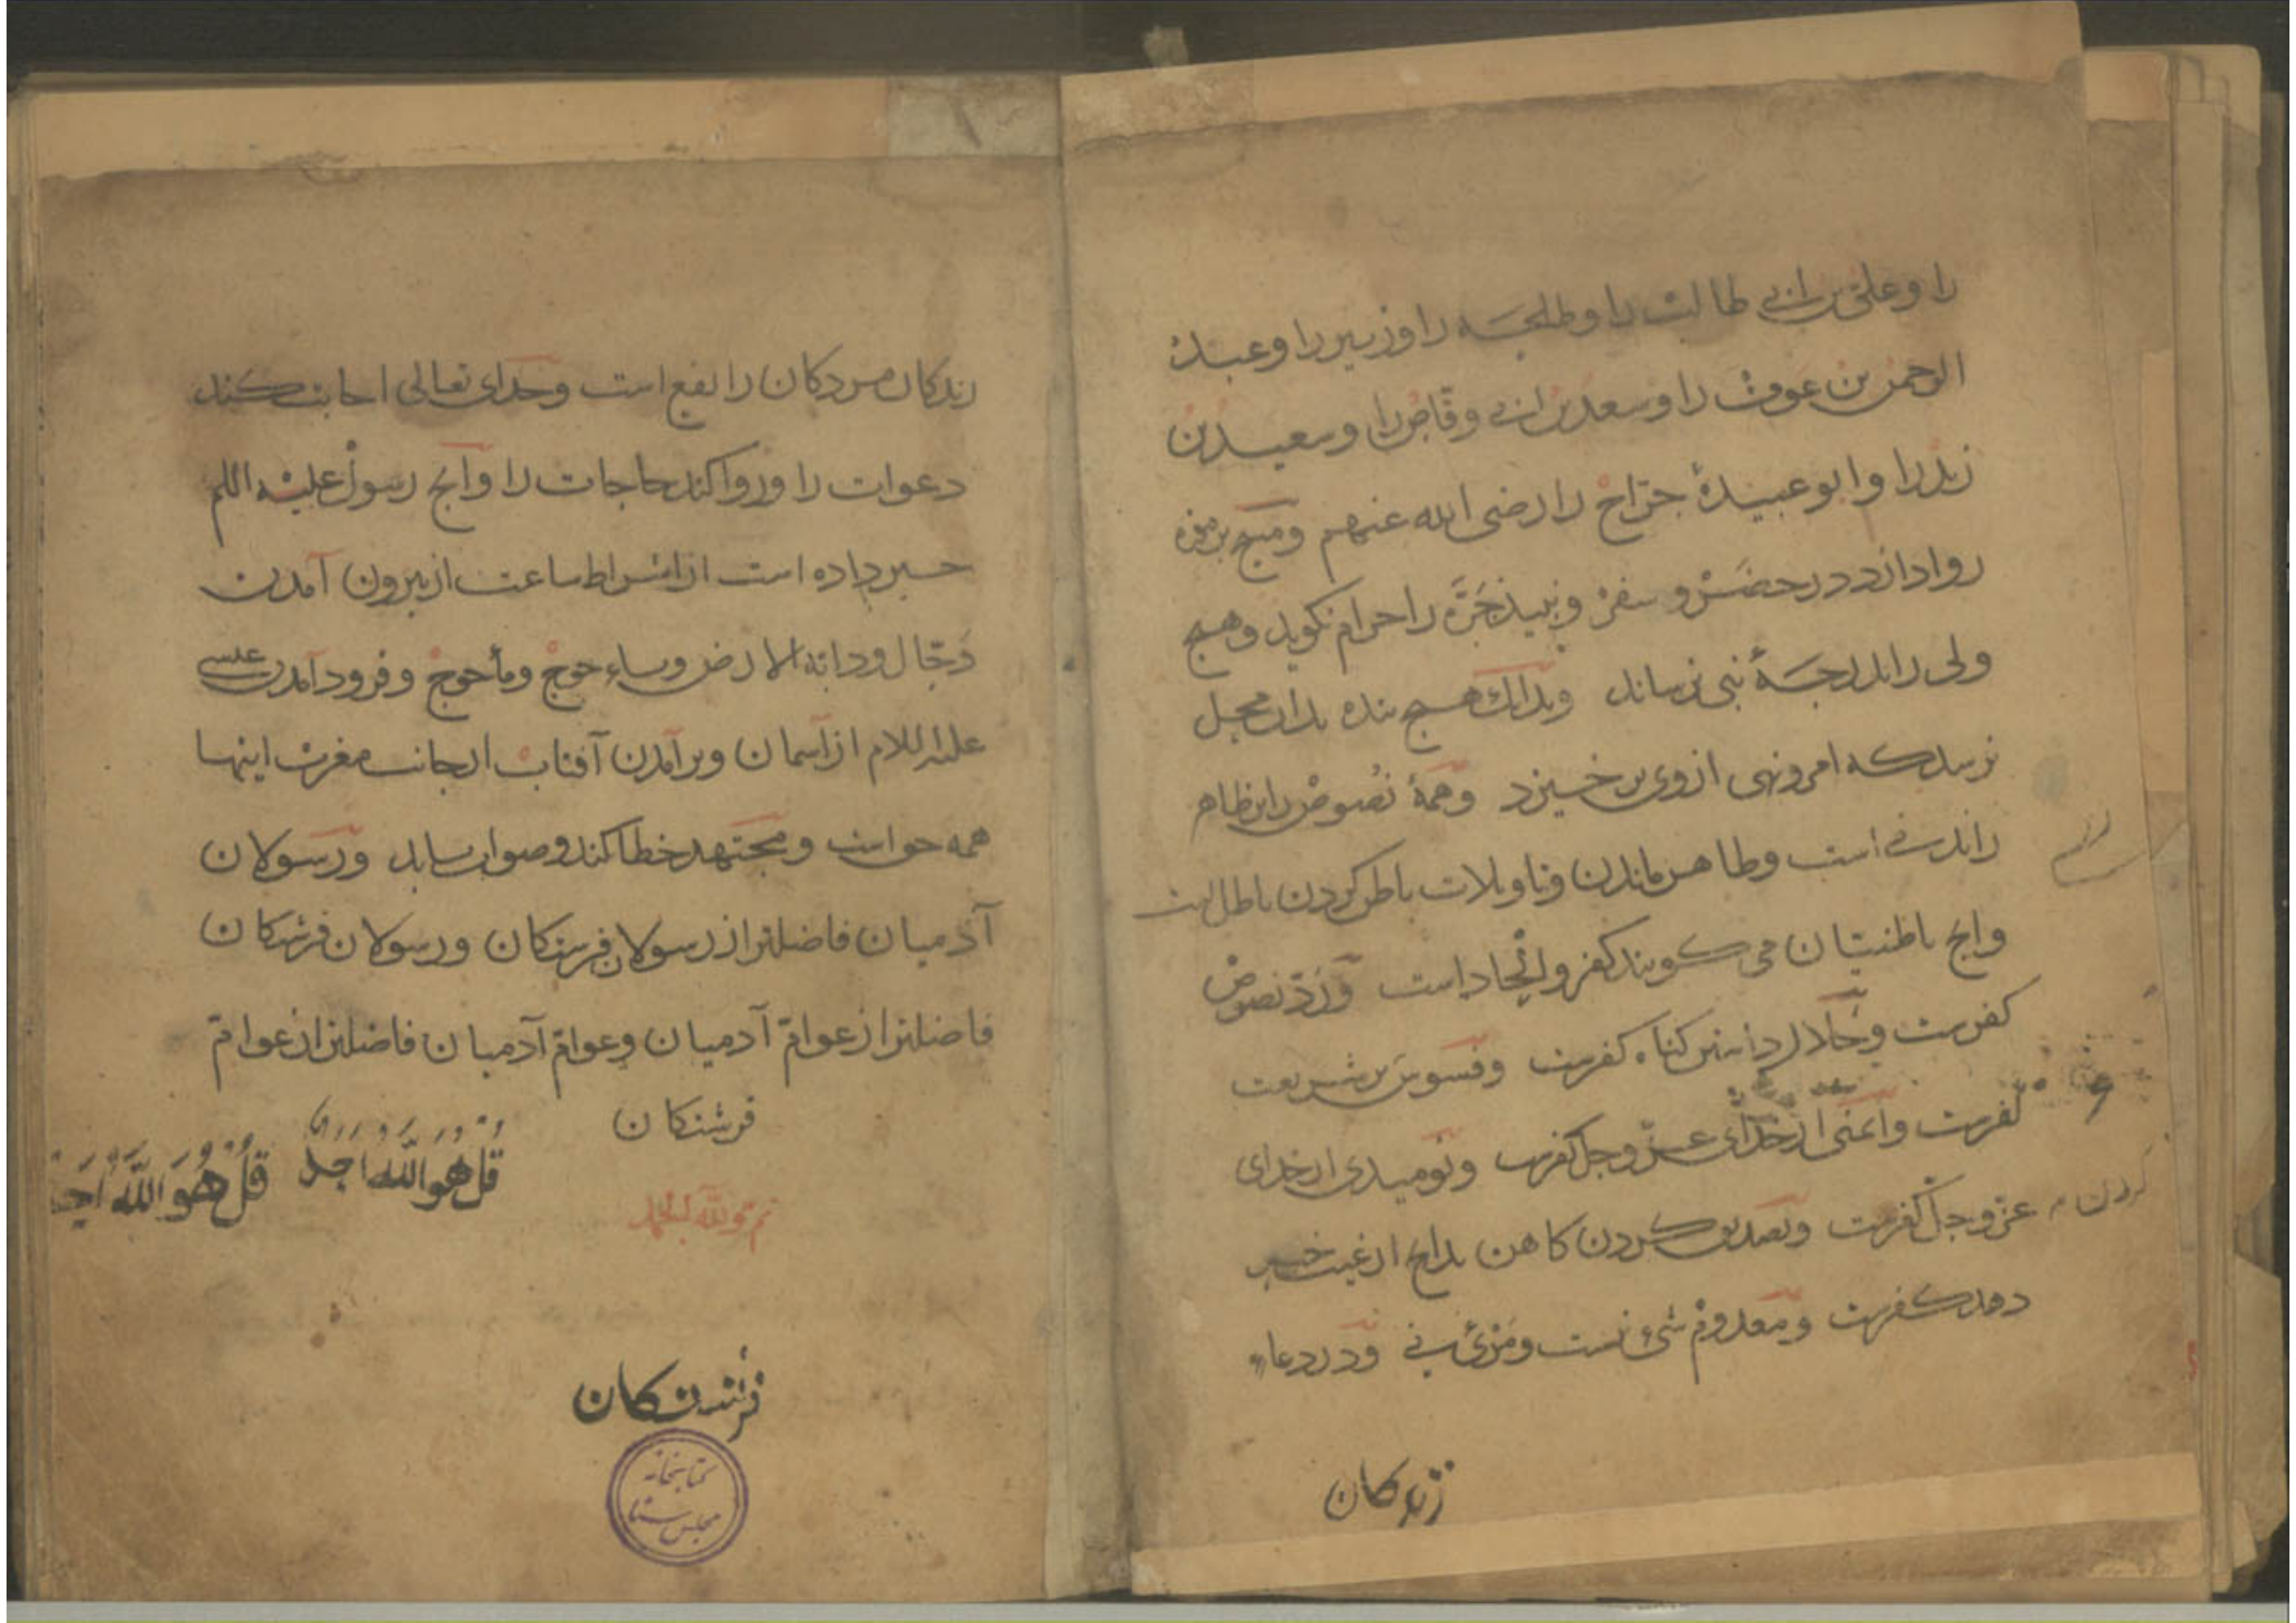 را و علی بن ابی طالب را و طلحه را و زبیر را و عبد
الرحمن بن عوف را و سعد بن ابی وقاص را و سعید بن
زید را و ابو عبیدهٔ جراح را رضی الله عنهم و مسح بر موزه
روا دارد در حضر و سفر و نبیذ جَرّه را حرام نگوید و هیچ
ولی را بدرجهٔ نبی نرساند و بدانک هیچ بنده بدان محل
نرسد که امر و نهی از وی برخیزد و همهٔ نصوص را بر ظاهر
راندنی است و ظاهر ماندن و تاویلات باطن کردن باطل است
و انچ باطنیان می کویند کفر و الحاد است و ردّ نصوص
کفرست و حلال داشتن کناه کفرست و فسوس بر شریعت
کفرست و ایمنی از خدای عزّ و جل کفرست و نومیدی از خدای
عزّ و جلّ کفرست و تصدیق کردن کاهن بدانچ از غیب خبر
کردن
دهد کفرست و معدوم شیٔ نیست و مرئی نی و در دعاء
زندکان
زندکان مردکان را نفع است و خدای تعالی اجابت کند
دعوات را و روا کند حاجات را و انچ رسول علیه السلم
خبر داده است از اشراط ساعت از بیرون آمدن
دجّال و دابة الارض و یاءجوج و مأجوج و فرود آمدن عیسی
علیه السلام از آسمان و برآمدن آفتاب از جانب مغرب اینها
همه حق است و مجتهد خطا کند و صواب یابد و رسولان
آدمیان فاضلتر از رسولان فرشتکان و رسولان فرشتکان
فاضلتر از عوامّ آدمیان و عوامّ آدمیان فاضلتر از عوامّ
فرشتکان
قُلْ هُوَ اللّٰهُ اَحَدٌ قُلْ هُوَ اللّٰهُ اَحَد
تم و لله الحمد
فرشتکان
کتابخانه
مجلس سنا